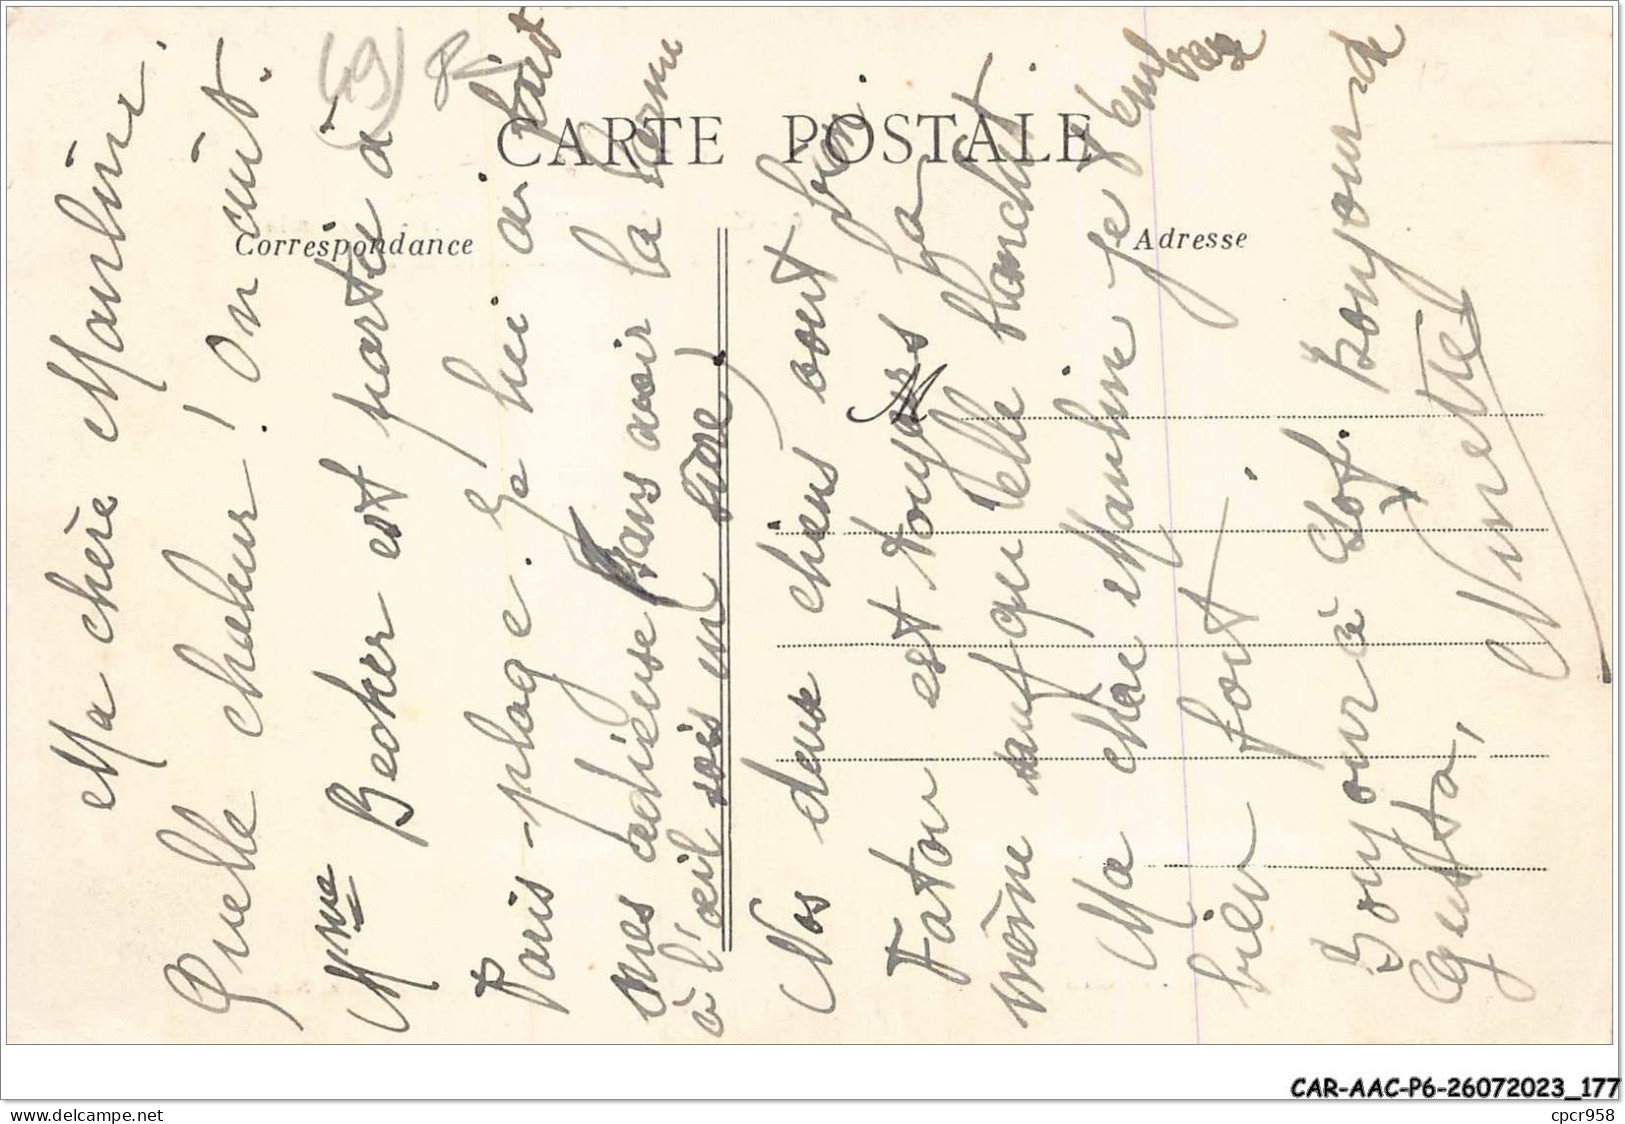 CARTE POSTALE
Correspondance
Adresse
M
(59)
Ma chère Marline.
Quelle chaleur! On cuit.
Mme Becker est partie à
Paris-plage. Je lui ai fait
mes adieux sans avoir la larme
à l'œil sois en sûre)
Nos deux chiens sont bien
Fatou est toujours la
même sauf qu'elle blanchit
Ma chère Marline je t'embrasse
bien fort.
Bonjour à Sof. bonjour de
Gutta,
Ninette
CAR-AAC-P6-26072023_177
www.delcampe.net
cpcr958